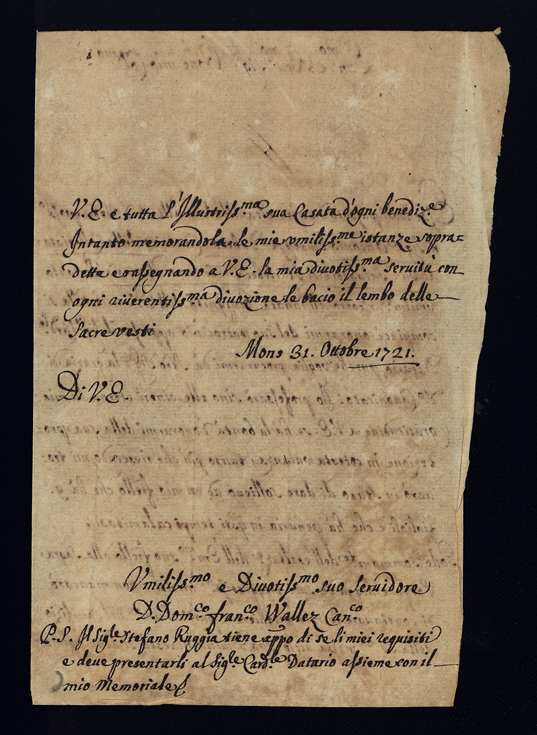 V. E. e tutta l'Illustriss.ma sua Casata d'ogni benediz.e
Intanto memorandola le mie vmiliss.me istanze sopra=
dette e rassegnando a V. E. la mia diuotiss.ma seruitù con
ogni riuerentiss.ma diuozione le bacio il lembo delle
Sacre vesti
Mons 31. Ottobre 1721.
Di V. E.
Vmiliss.mo e Diuotiss.mo suo Seruidore
D. Dom.co fran.co Wallez Can.co
P. S. Il Sig.le Stefano Ruggia tiene appo di se li miei requisiti
e deue presentarli al Sig.le Card.le Datario assieme con il
mio Memoriale